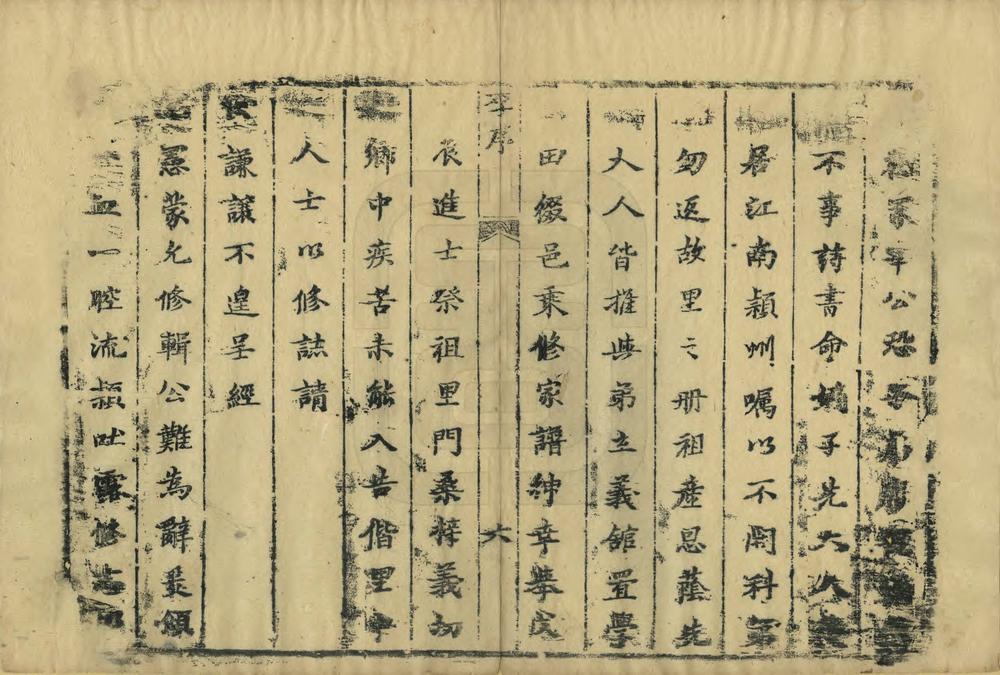 年公恐子
不事詩書命嫡子先大人
居江南潁州囑以不開科第
勿返故里之册祖產恩蔭先
大人皆推與弟立義館置學
田綴邑乘修家譜紳幸舉戊
李序
六
辰進士祭祖里門桑梓義切
鄉中疾苦未能入告偕里中
人士以修誌請
謙讓不遑呈經
憲蒙允修輯公難為辭衆領
血一腔流潁吐露修志